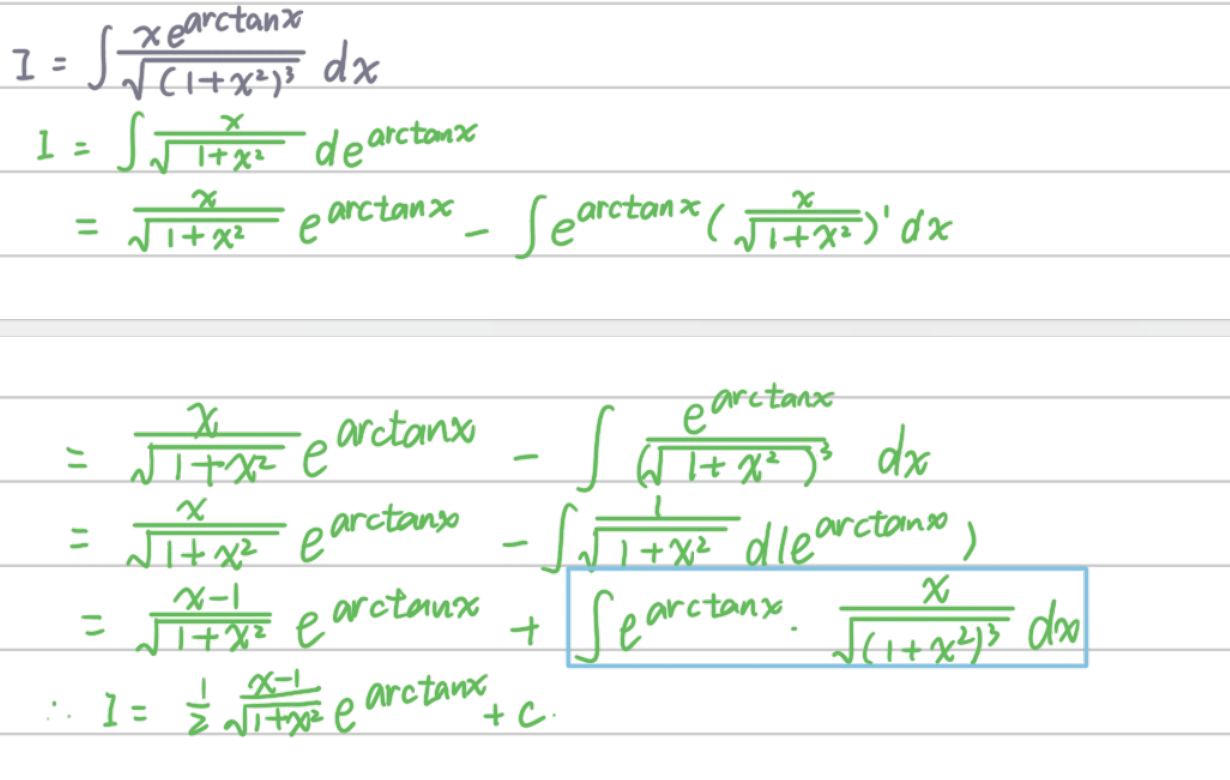 I = ∫ \frac{x e^{arctan x}}{\sqrt{(1+x²)³}} dx
I = ∫ \frac{x}{\sqrt{1+x²}} de^{arctan x}
= \frac{x}{\sqrt{1+x²}} e^{arctan x} - ∫ e^{arctan x} (\frac{x}{\sqrt{1+x²}})' dx
= \frac{x}{\sqrt{1+x²}} e^{arctan x} - ∫ \frac{e^{arctan x}}{(\sqrt{1+x²})³} dx
= \frac{x}{\sqrt{1+x²}} e^{arctan x} - ∫ \frac{1}{\sqrt{1+x²}} d(e^{arctan x})
= \frac{x-1}{\sqrt{1+x²}} e^{arctan x} + ∫ e^{arctan x} · \frac{x}{\sqrt{(1+x²)³}} dx
∴ I = \frac{1}{2} \frac{x-1}{\sqrt{1+x²}} e^{arctan x} + c.